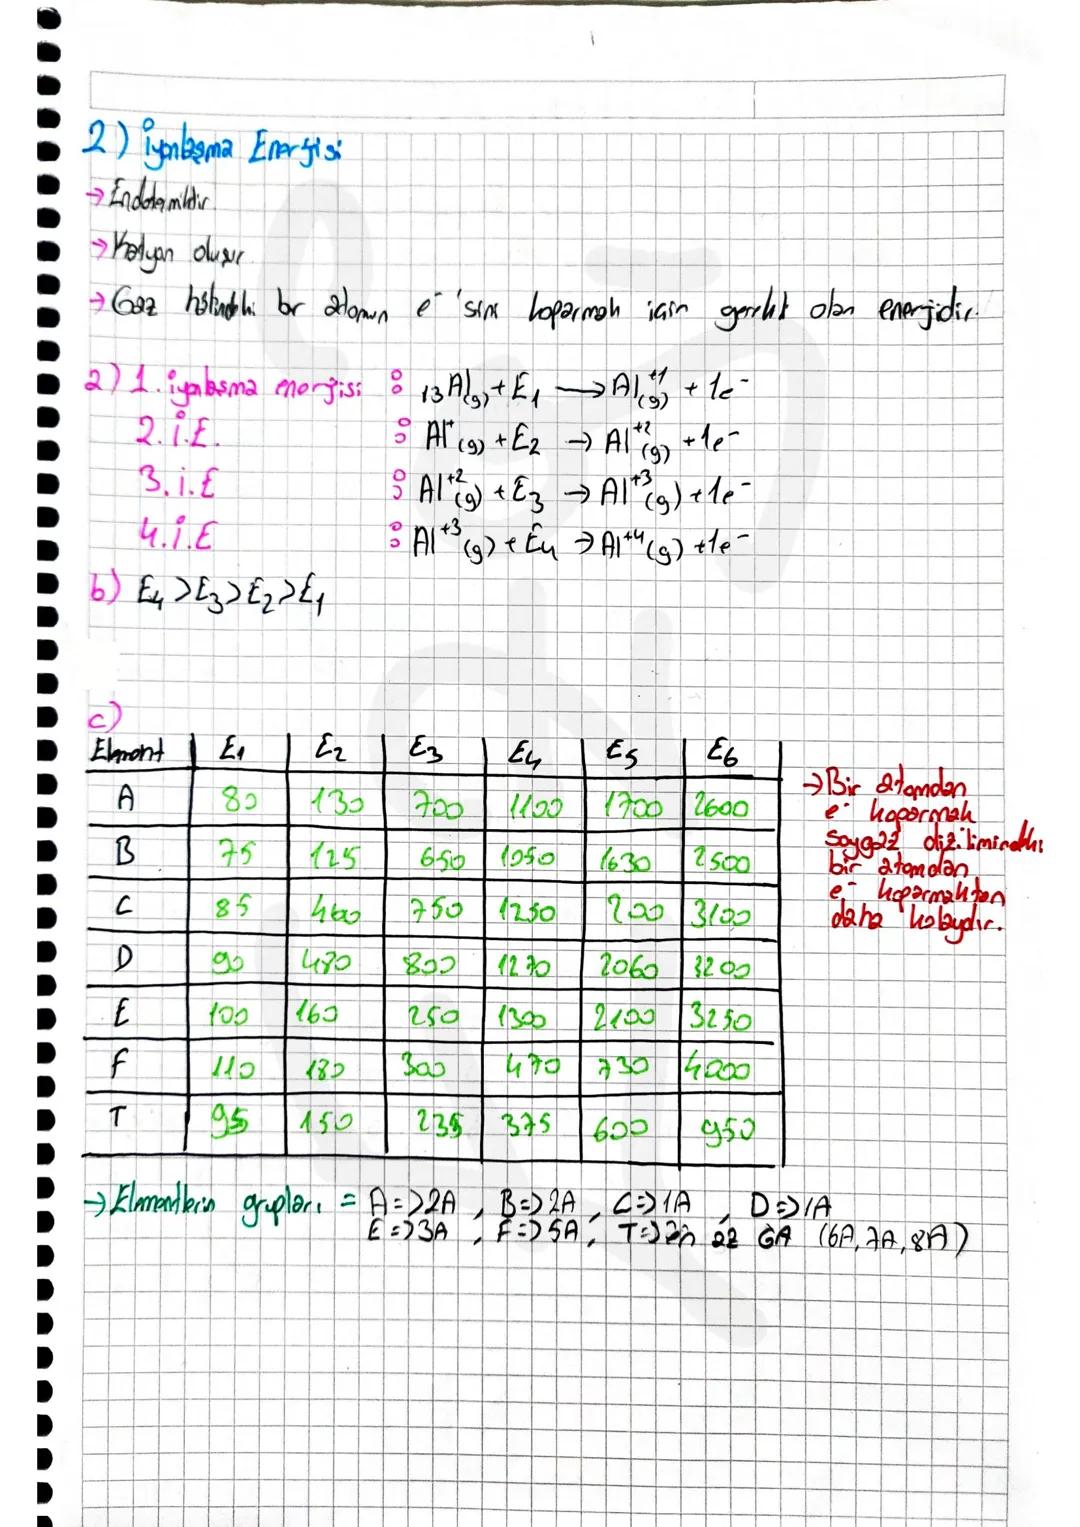 2) İyonlaşma Enerjisi
→ Endotermiktir.
→ Katyon oluşur.
→ Gaz hâlindeki bir atomun e⁻ 'sini koparmak için gerekli olan enerjidir.
a) 1. iyonlaşma enerjisi : ₁₃Al(g) + E₁ → Al⁺¹(g) + 1e⁻
2. İ.E. : Al⁺(g) + E₂ → Al⁺²(g) + 1e⁻
3. İ.E : Al⁺²(g) + E₃ → Al⁺³(g) + 1e⁻
4. İ.E : Al⁺³(g) + E₄ → Al⁺⁴(g) + 1e⁻
b) E₄ > E₃ > E₂ > E₁
c)
Element E₁ E₂ E₃ E₄ E₅ E₆
A 80 130 700 1100 1700 2600
B 75 125 650 1050 1630 2500
C 85 460 750 1250 200 3100
D 90 480 800 1270 2060 3200
E 100 160 250 1300 2100 3250
F 110 180 300 470 730 4000
T 95 150 235 375 600 950
→ Bir atomdan
e⁻ koparmak
soygaz dizilimindeki
bir atomdan
e⁻ koparmaktan
daha kolaydır.
→ Elementlerin grupları = A => 2A , B => 2A , C => 1A , D => 1A
E => 3A , F => 5A , T => en az 6A (6A, 7A, 8A)